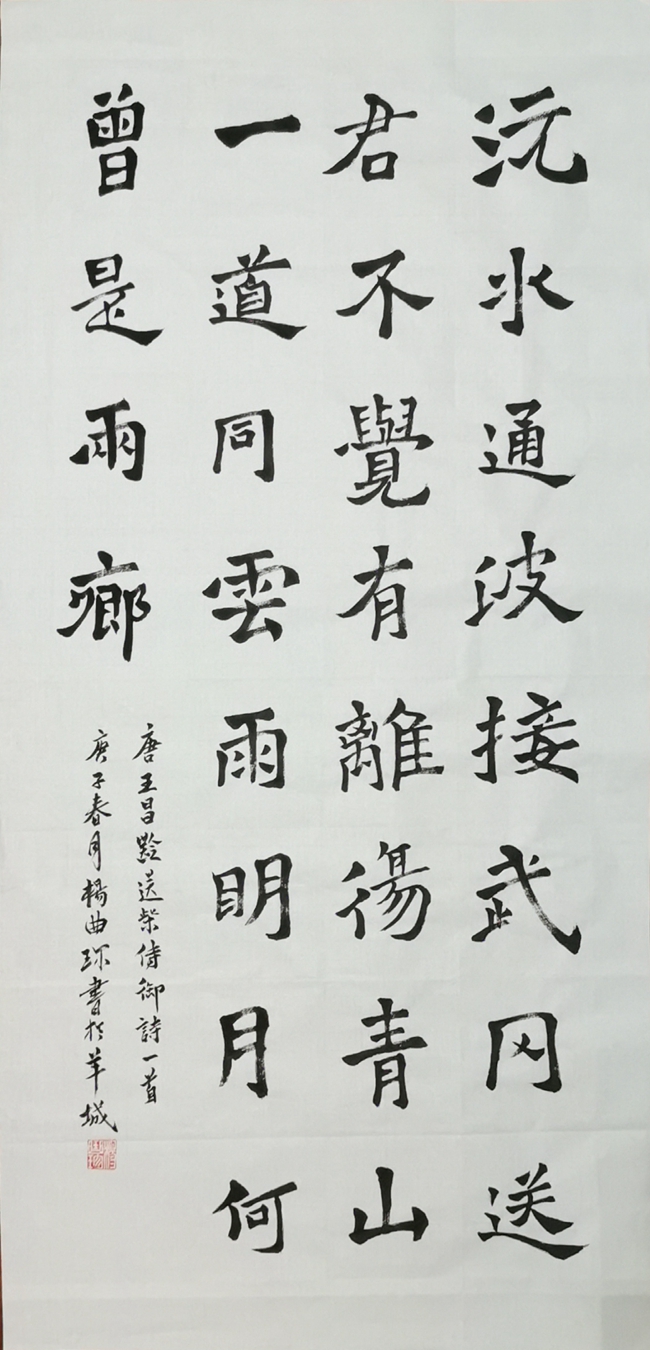 沅水通波接武冈送
君不覺有離傷青山
一道同雲雨明月何
曾是兩鄉
唐王昌齡送柴侍御詩一首
庚子春月楊曲珎書扵羊城